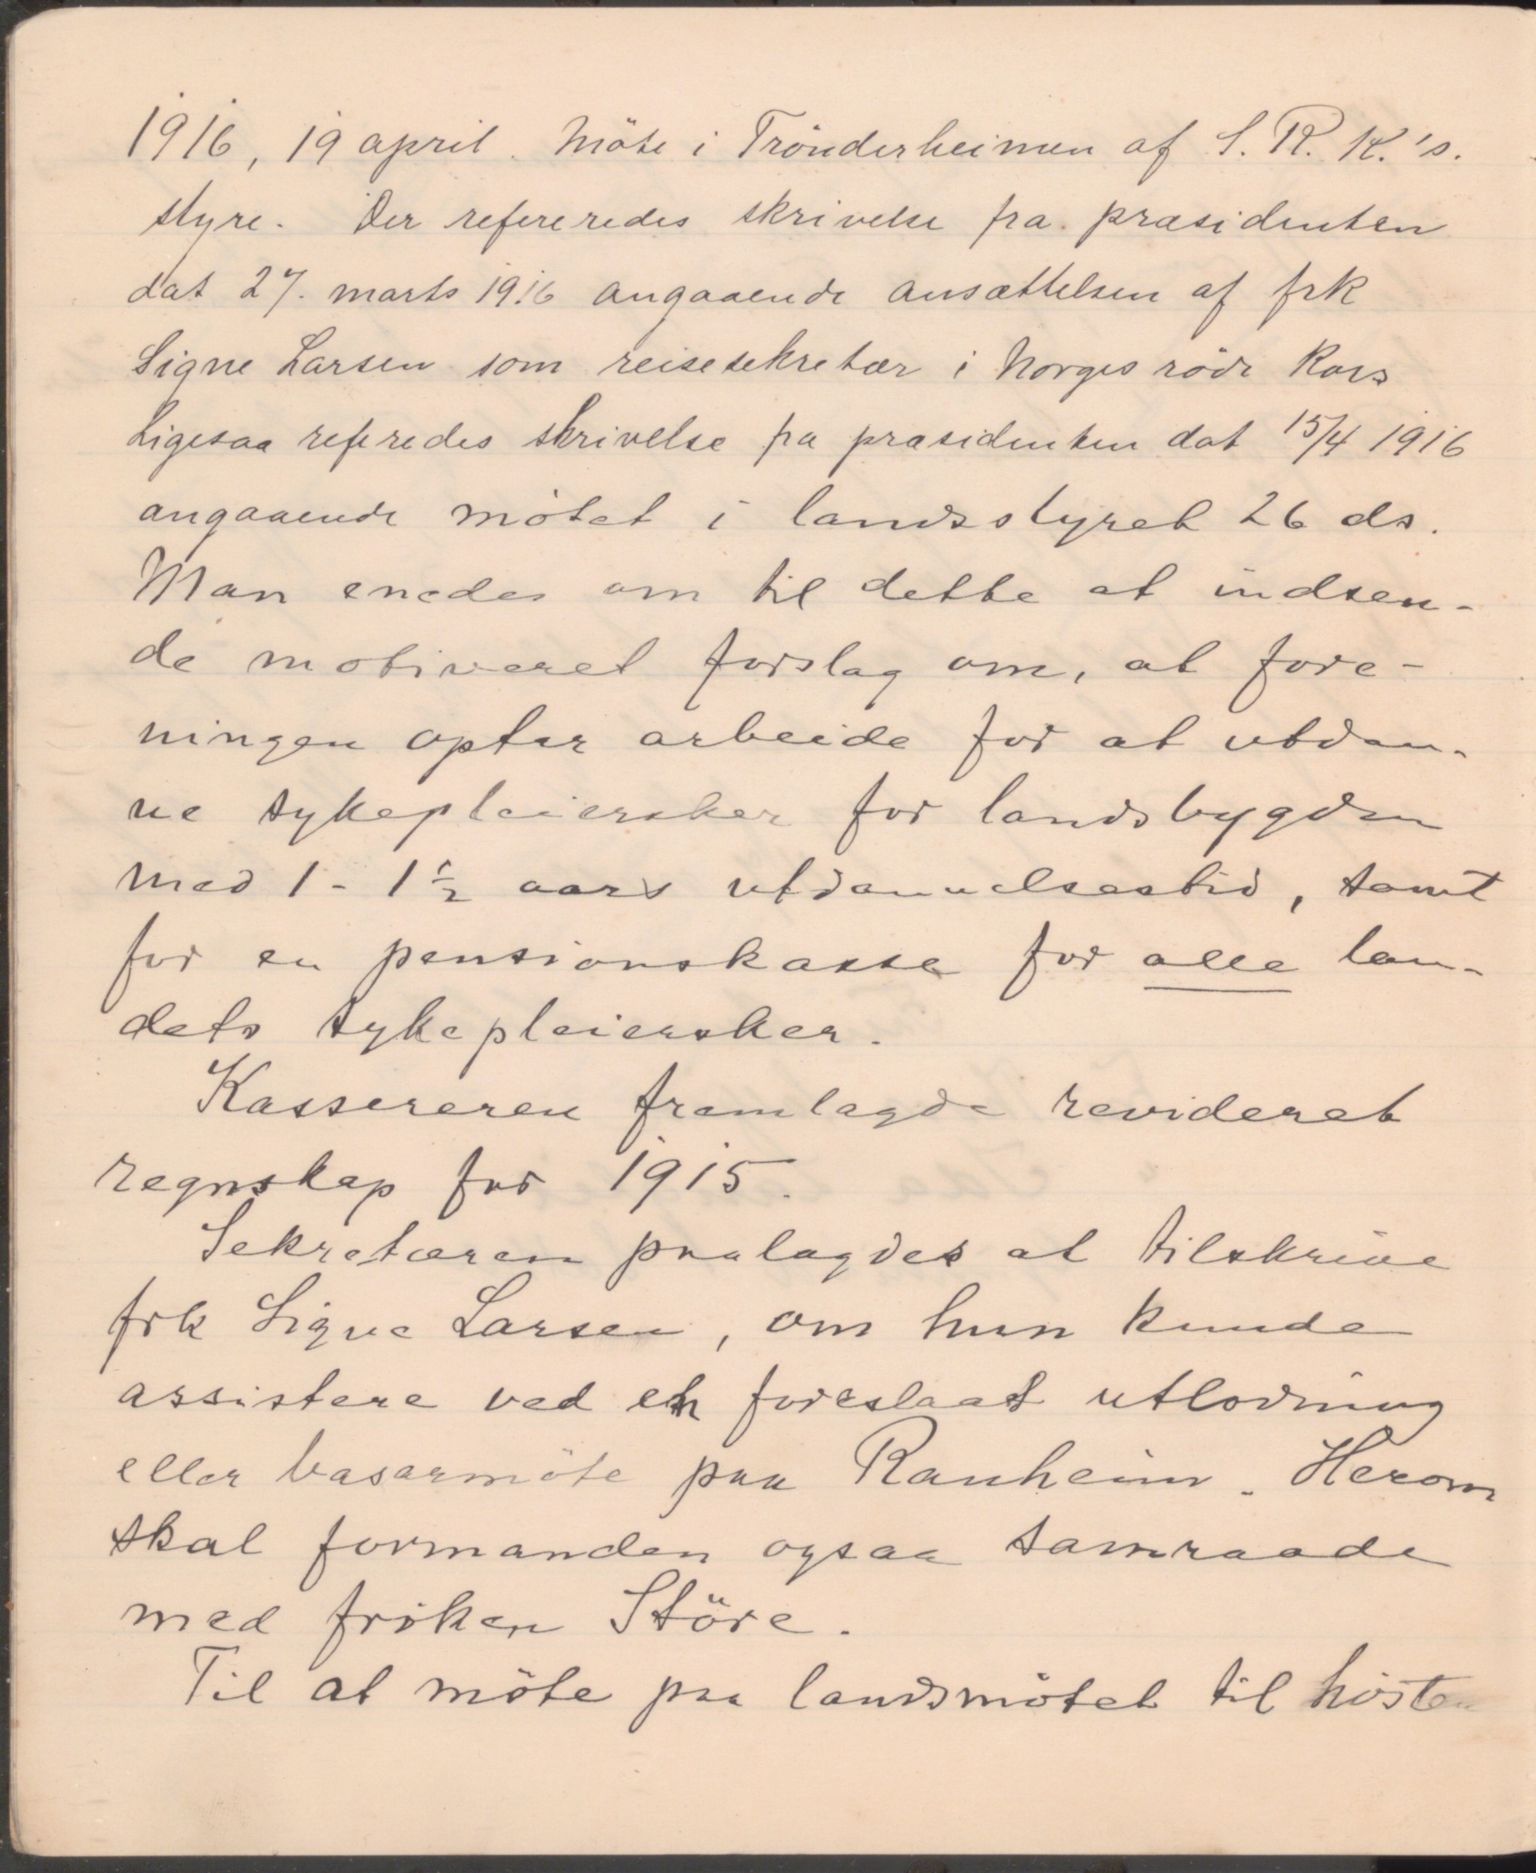 1916, 19 april. Möte i Trönderheimen af S. R. K.'s.
styre. Der refereredes skrivelse fra præsidenten
dat 27. marts 1916 angaaende ansættelsen af frk
Signe Larsen som reisesekretær i Norges röde Kors
Ligesaa referedes skrivelse fra præsidenten dat 15/4 1916
angaaende mötet i landsstyret 26 ds.
Man enedes om til dette at indsen-
de motiveret forslag om, at fore-
ningen optar arbeide for at utdan-
ne sykepleiersker for landsbygden
med 1 - 1½ aars utdannelsestid, samt
for en pensionskasse for alle lan-
dets sykepleiersker.
Kassereren framlagde revideret
regnskap for 1915.
Sekretæren paalagdes at tilskrive
frk Signe Larsen, om hun kunde
assistere ved en foreslaat utlodning
eller basarmöte paa Ranheim. Herom
skal formanden ogsaa samraade
med fröken Störe.
Til at möte paa landsmötet til hösten